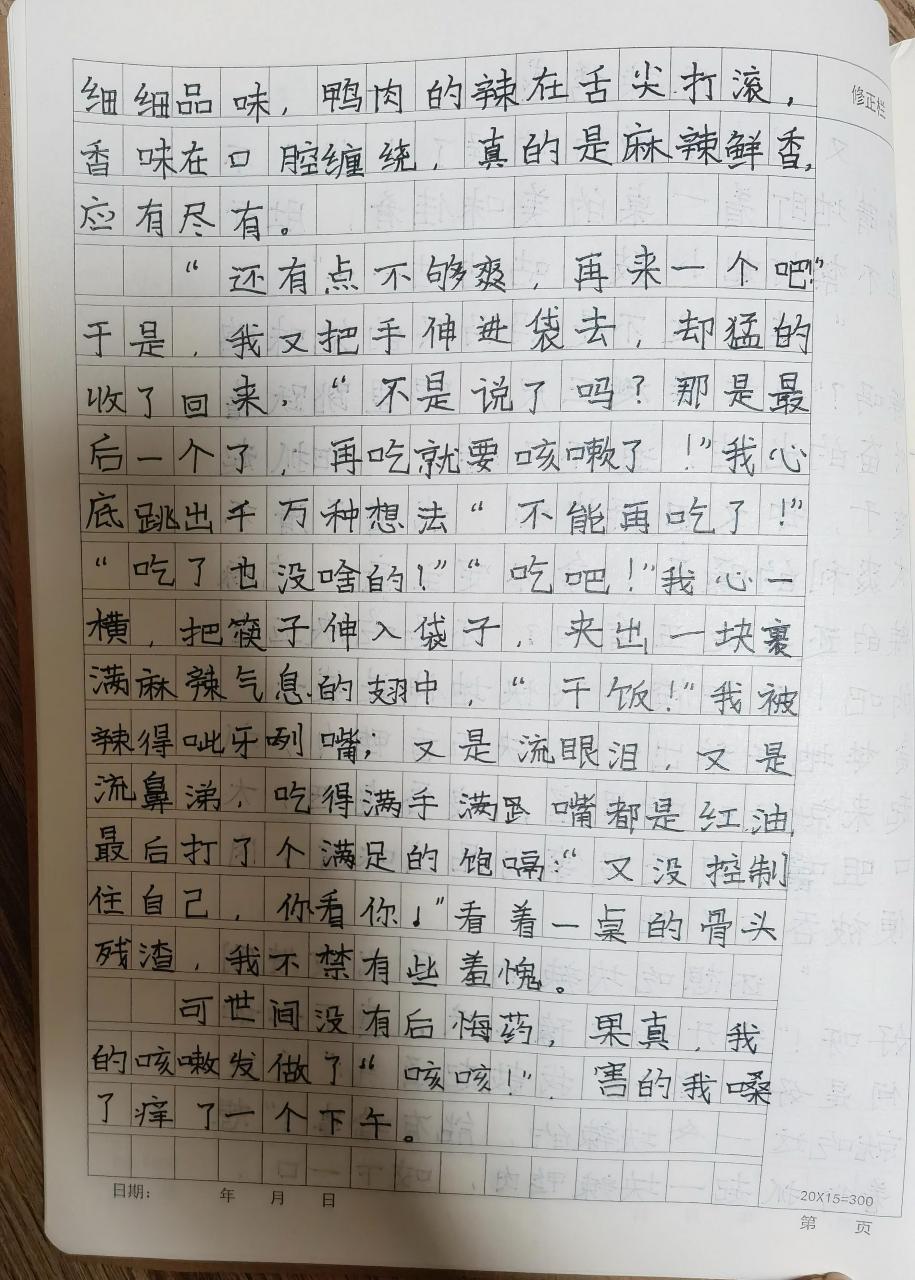 修正栏
细细品味，鸭肉的辣在舌尖打滚，
香味在口腔缠绕，真的是麻辣鲜香，
应有尽有。
“还有点不够爽，再来一个吧！”
于是，我又把手伸进袋去，却猛的
收了回来，“不是说了吗？那是最
后一个了，再吃就要咳嗽了！”我心
底跳出千万种想法“不能再吃了！”
“吃了也没啥的！”“吃吧！”我心一
横，把筷子伸入袋子，夹出一块裹
满麻辣气息的翅中，“干饭！”我被
辣得呲牙咧嘴；又是流眼泪，又是
流鼻涕，吃得满手满 嘴都是红油，
最后打了个满足的饱嗝：“又没控制
住自己，你看你！”看着一桌的骨头
残渣，我不禁有些羞愧。
可世间没有后悔药，果真，我
的咳嗽发做了“咳咳！”，害的我嗓
了痒了一个下午。
日期： 年 月 日
20X15=300
第 页